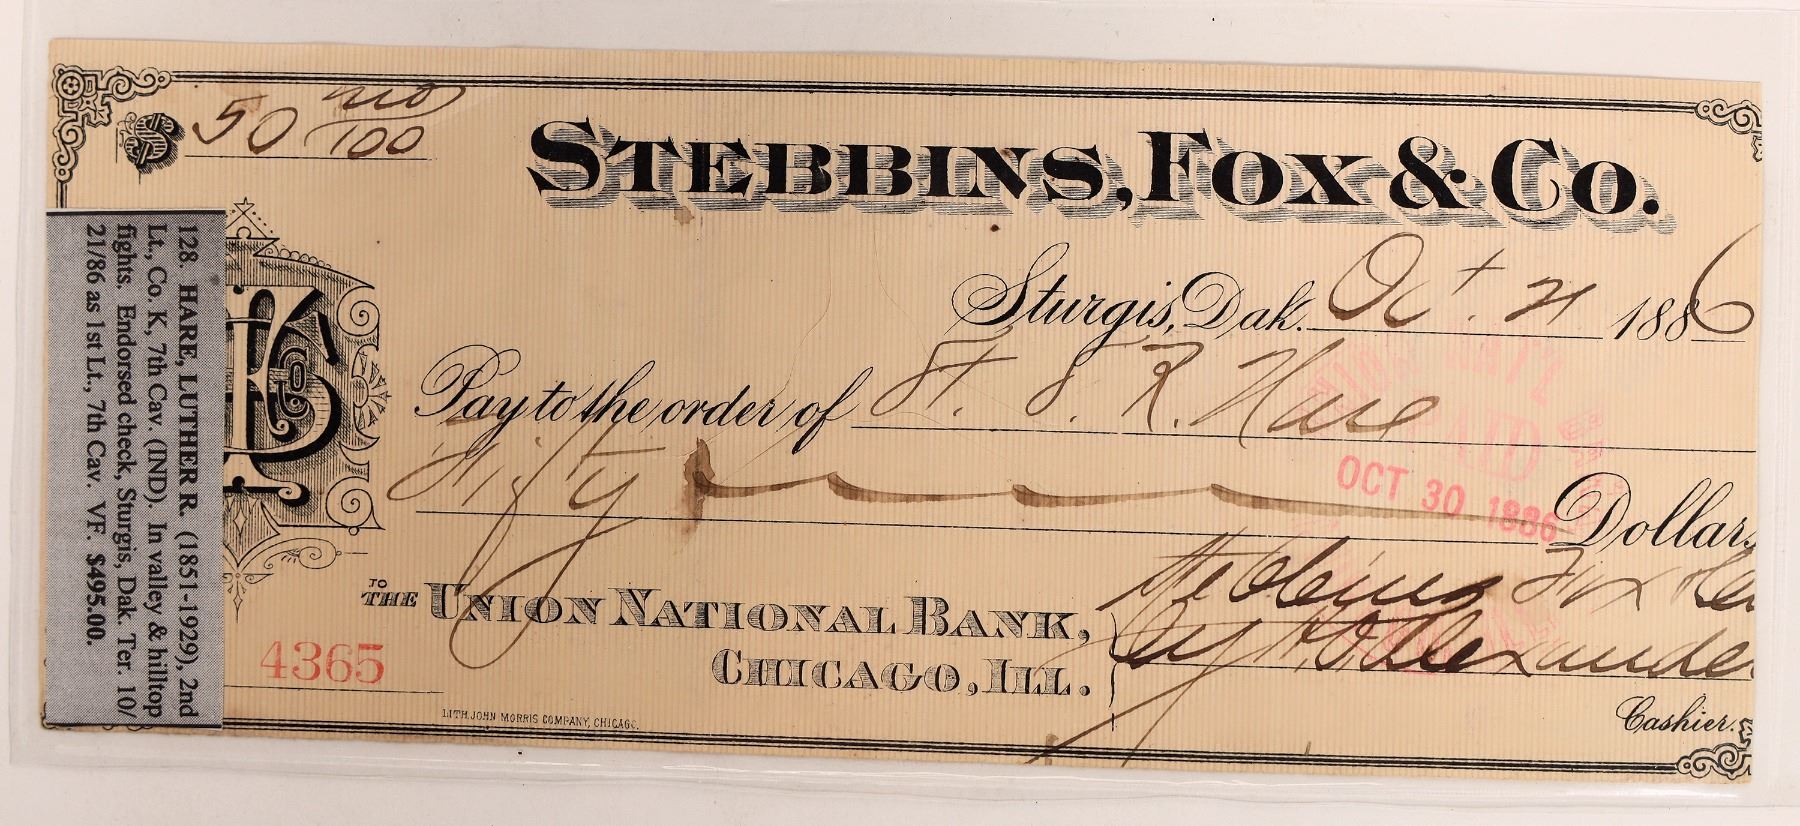 $ 50 no/100
STEBBINS, FOX & CO.
Sturgis, Dak. Oct. 21 1886
Pay to the order of Lt. L. R. Hare
Fifty Dollars
UNION NAT'L
PAID
OCT 30 1886
TO THE UNION NATIONAL BANK,
CHICAGO, ILL.
Stebbins Fox & Co
By H. O. Alexander
Cashier.
4365
LITH. JOHN MORRIS COMPANY, CHICAGO.
128. HARE, LUTHER R. (1851-1929), 2nd
Lt., Co. K, 7th Cav. (IND). In valley & hilltop
fights. Endorsed check, Sturgis, Dak. Ter. 10/
21/86 as 1st Lt., 7th Cav. VF. $495.00.